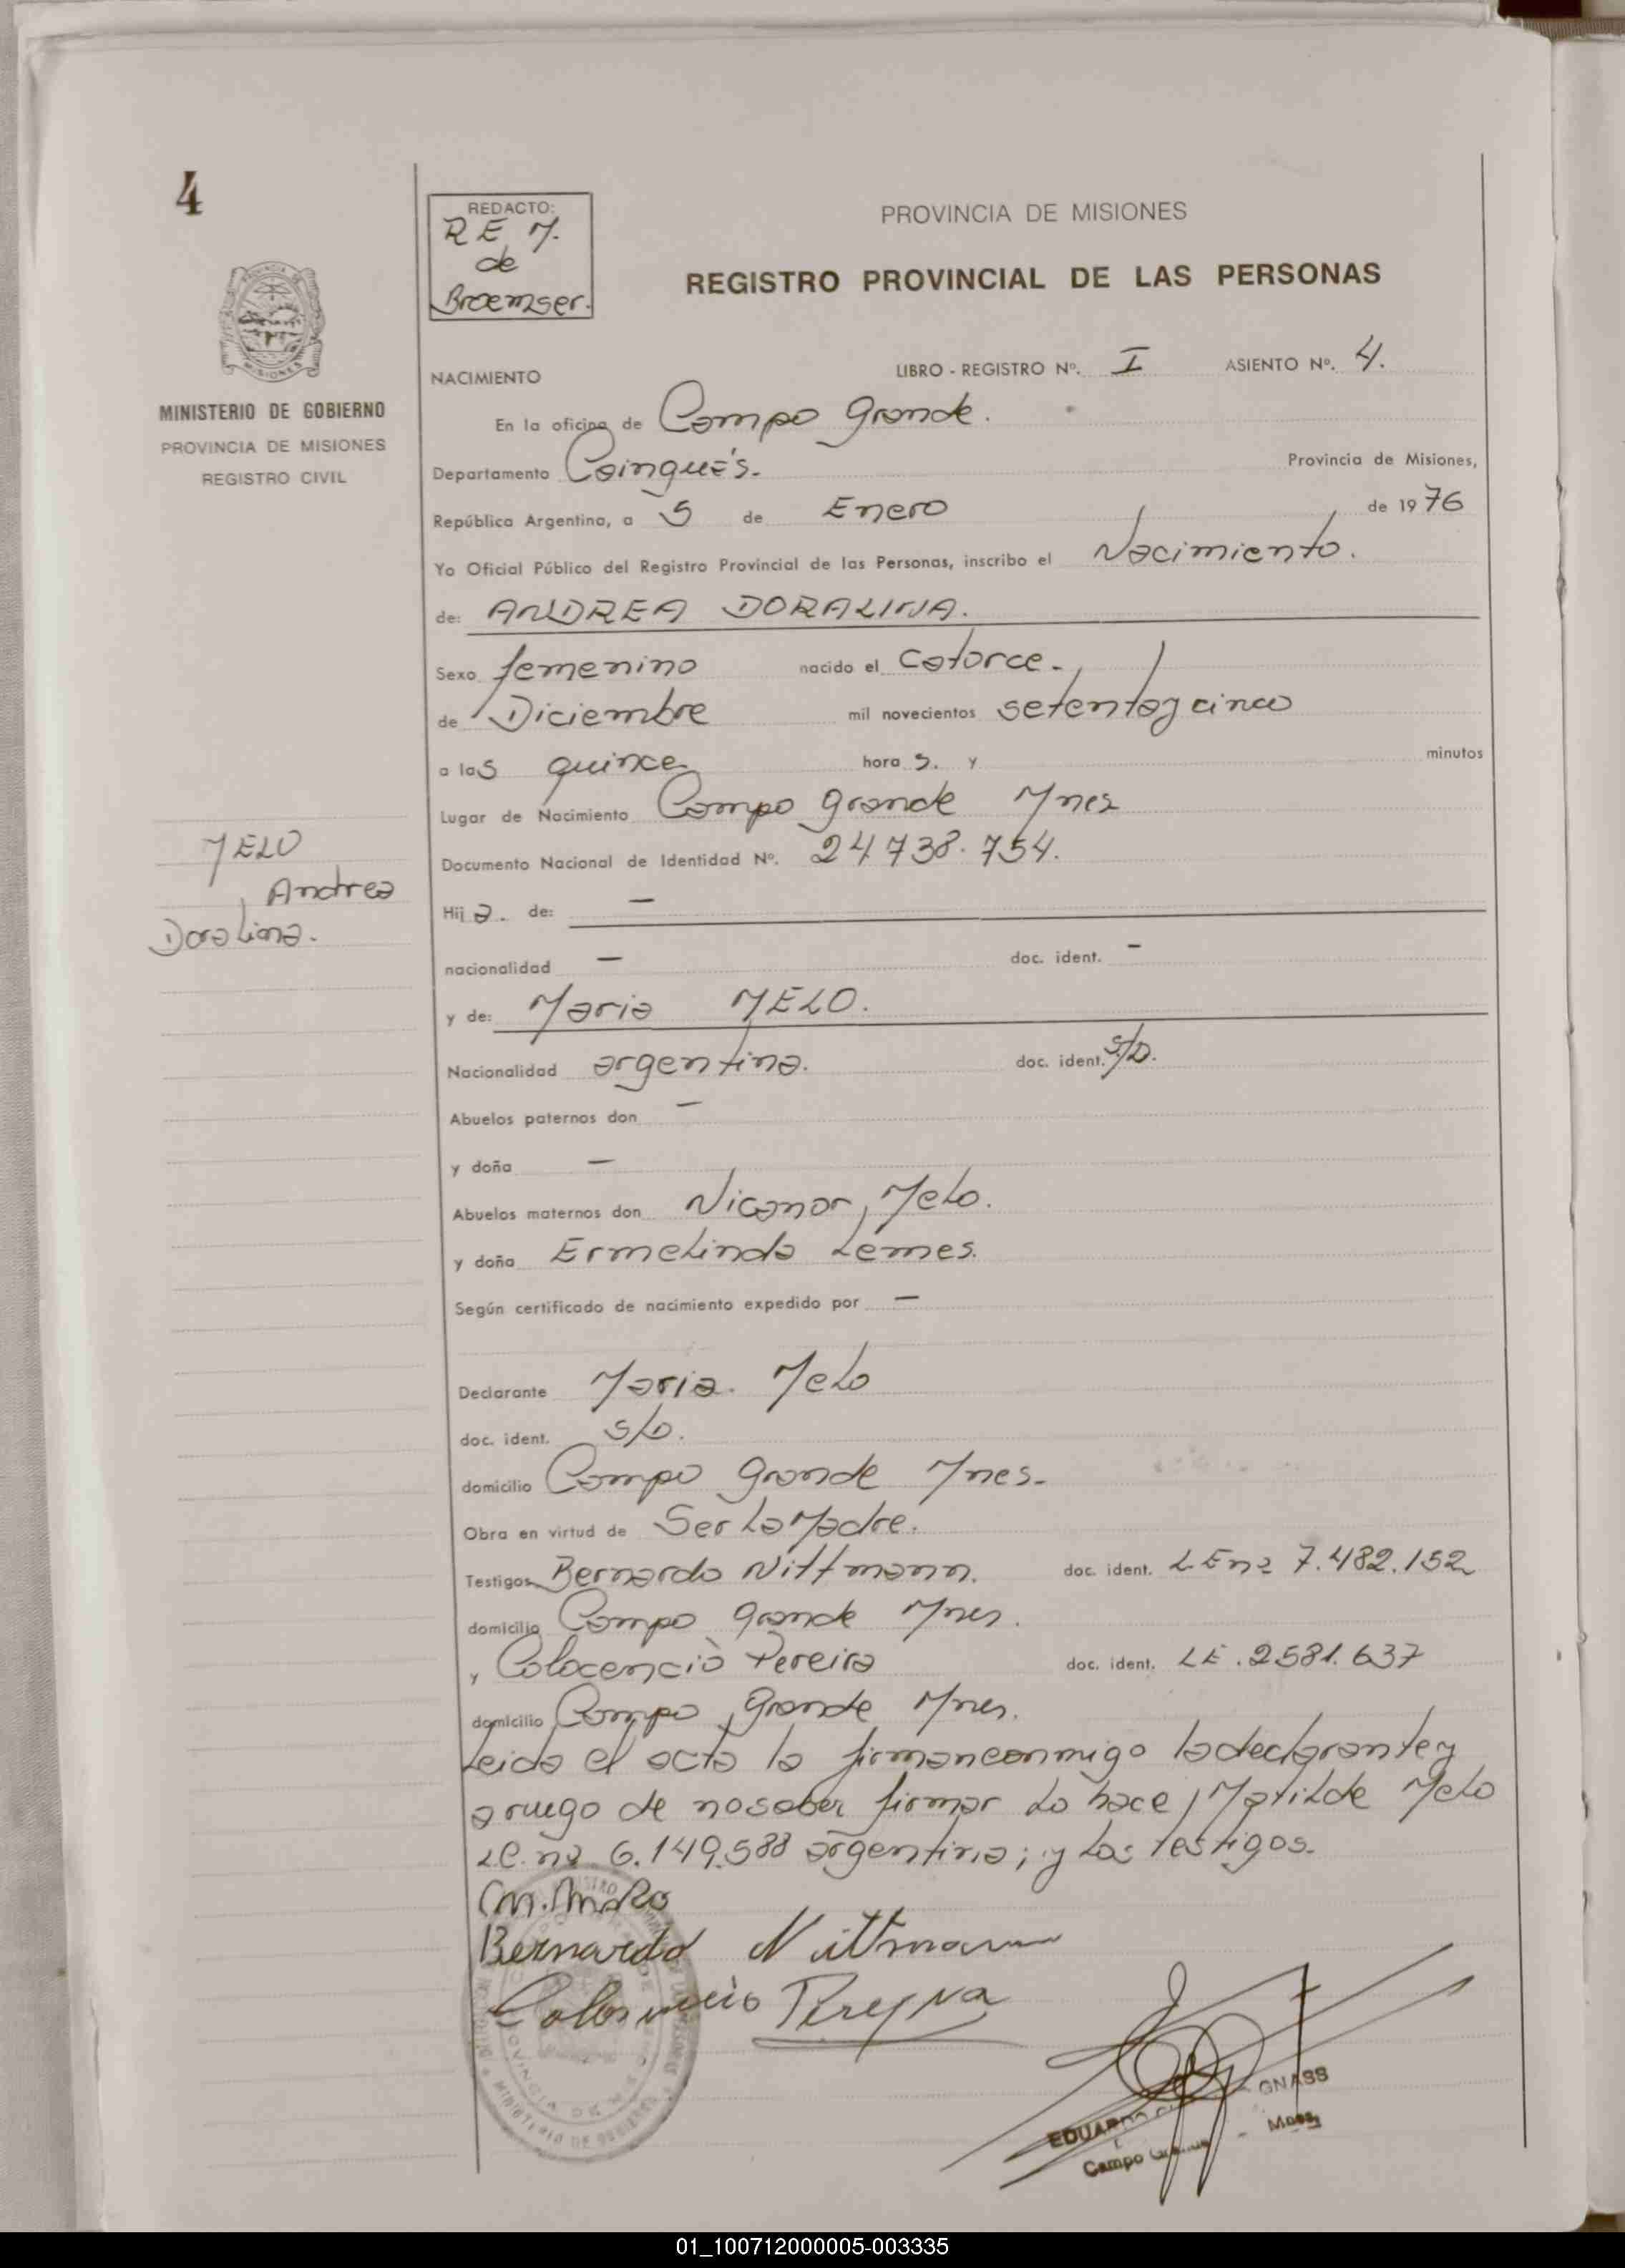 4
REDACTO:
R E M.
de
Broemser.
PROVINCIA DE MISIONES
REGISTRO PROVINCIAL DE LAS PERSONAS
MINISTERIO DE GOBIERNO
PROVINCIA DE MISIONES
REGISTRO CIVIL
NACIMIENTO LIBRO - REGISTRO Nº. I ASIENTO Nº. 4.
En la oficina de Campo Grande.
Departamento Caingués. Provincia de Misiones,
República Argentina, a 5 de Enero de 1976
Yo Oficial Público del Registro Provincial de las Personas, inscribo el Nacimiento.
de: ANDREA DORALINA.
Sexo femenino nacido el catorce.
de Diciembre mil novecientos setenta y cinco
a las quince hora s. y minutos
Lugar de Nacimiento Campo Grande Mnes
Documento Nacional de Identidad Nº. 24.738.754.
MELO
Andrea
Doralina.
Hij a. de: —
nacionalidad — doc. ident. —
y de: Maria MELO.
Nacionalidad argentina. doc. ident. S/D.
Abuelos paternos don —
y doña —
Abuelos maternos don Nicanor Melo.
y doña Ermelinda Lemes.
Según certificado de nacimiento expedido por —
Declarante Maria. Melo
doc. ident. S/D.
domicilio Campo Grande Mnes.
Obra en virtud de Ser La Madre.
Testigos Bernardo Nittmann. doc. ident. L E nº 7.482.152
domicilio Campo Grande Mnes.
y Colocencio Pereira doc. ident. LE. 2581.637
domicilio Campo Grande Mnes.
Leida el acta la firman conmigo la declarante y
a ruego de no saber firmar Lo hace Matilde Melo
LC. nº 6.149.588 argentina; y Los testigos.
Bernardo Nittmann
Pereyra
EDUARDO GNASS
Campo - Mnes.
MINISTERIO DE GOBIERNO
01_100712000005-003335